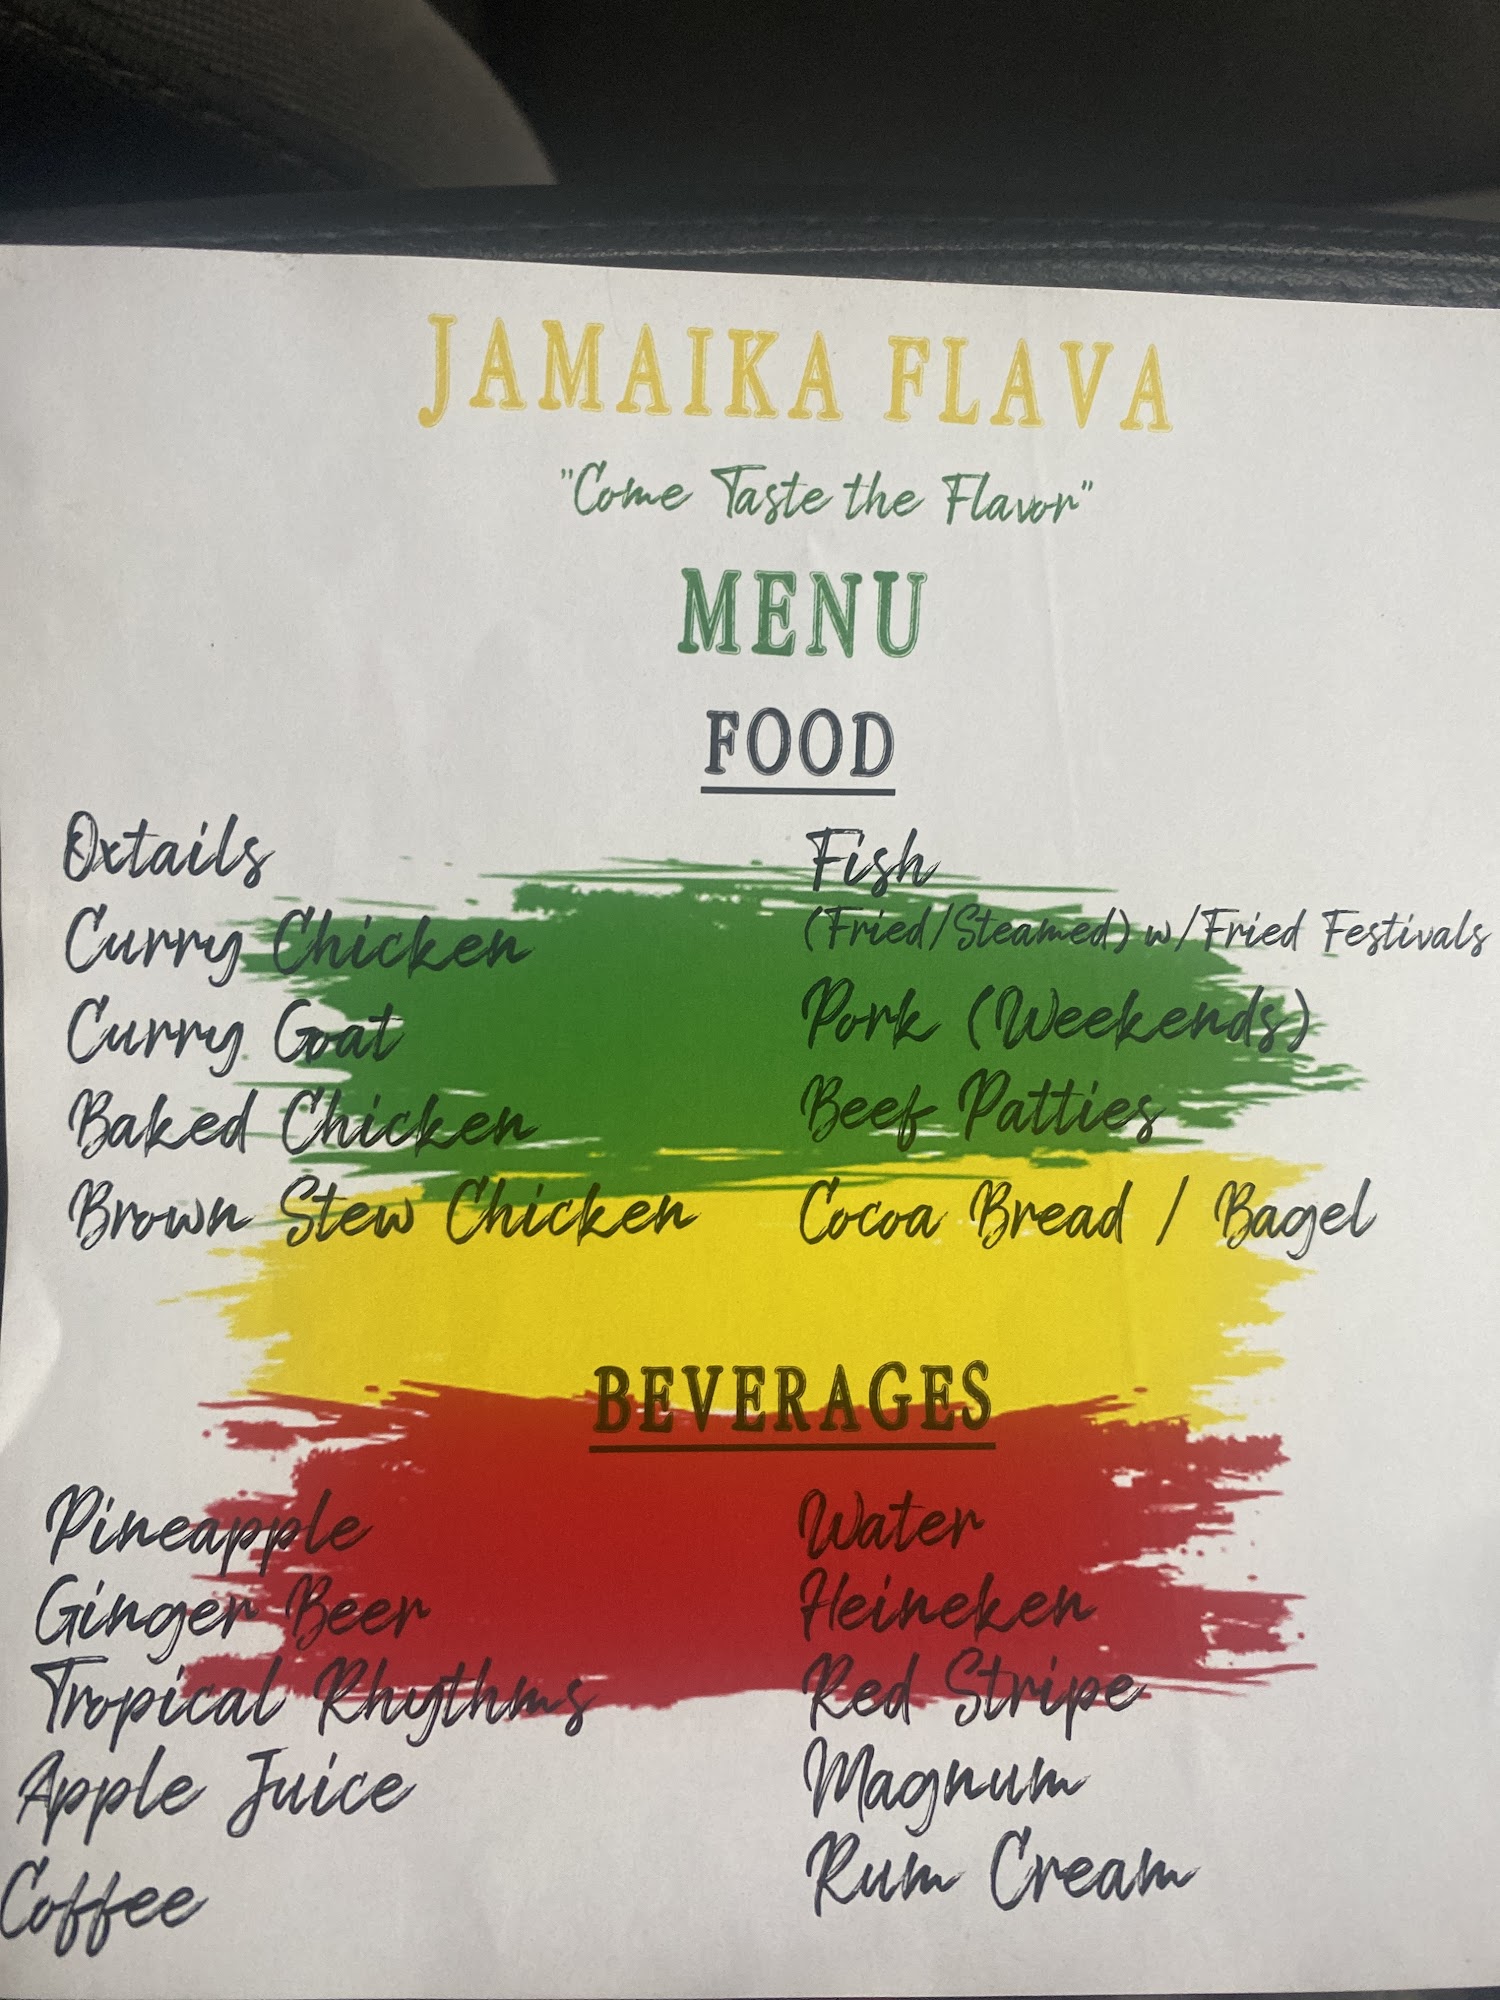 JAMAIKA FLAVA
"Come Taste the Flavor"
MENU
FOOD
Oxtails
Curry Chicken
Curry Goat
Baked Chicken
Brown Stew Chicken
Fish
(Fried/Steamed) w/Fried Festivals
Pork (Weekends)
Beef Patties
Cocoa Bread / Bagel
BEVERAGES
Pineapple
Ginger Beer
Tropical Rhythms
Apple Juice
Coffee
Water
Heineken
Red Stripe
Magnum
Rum Cream